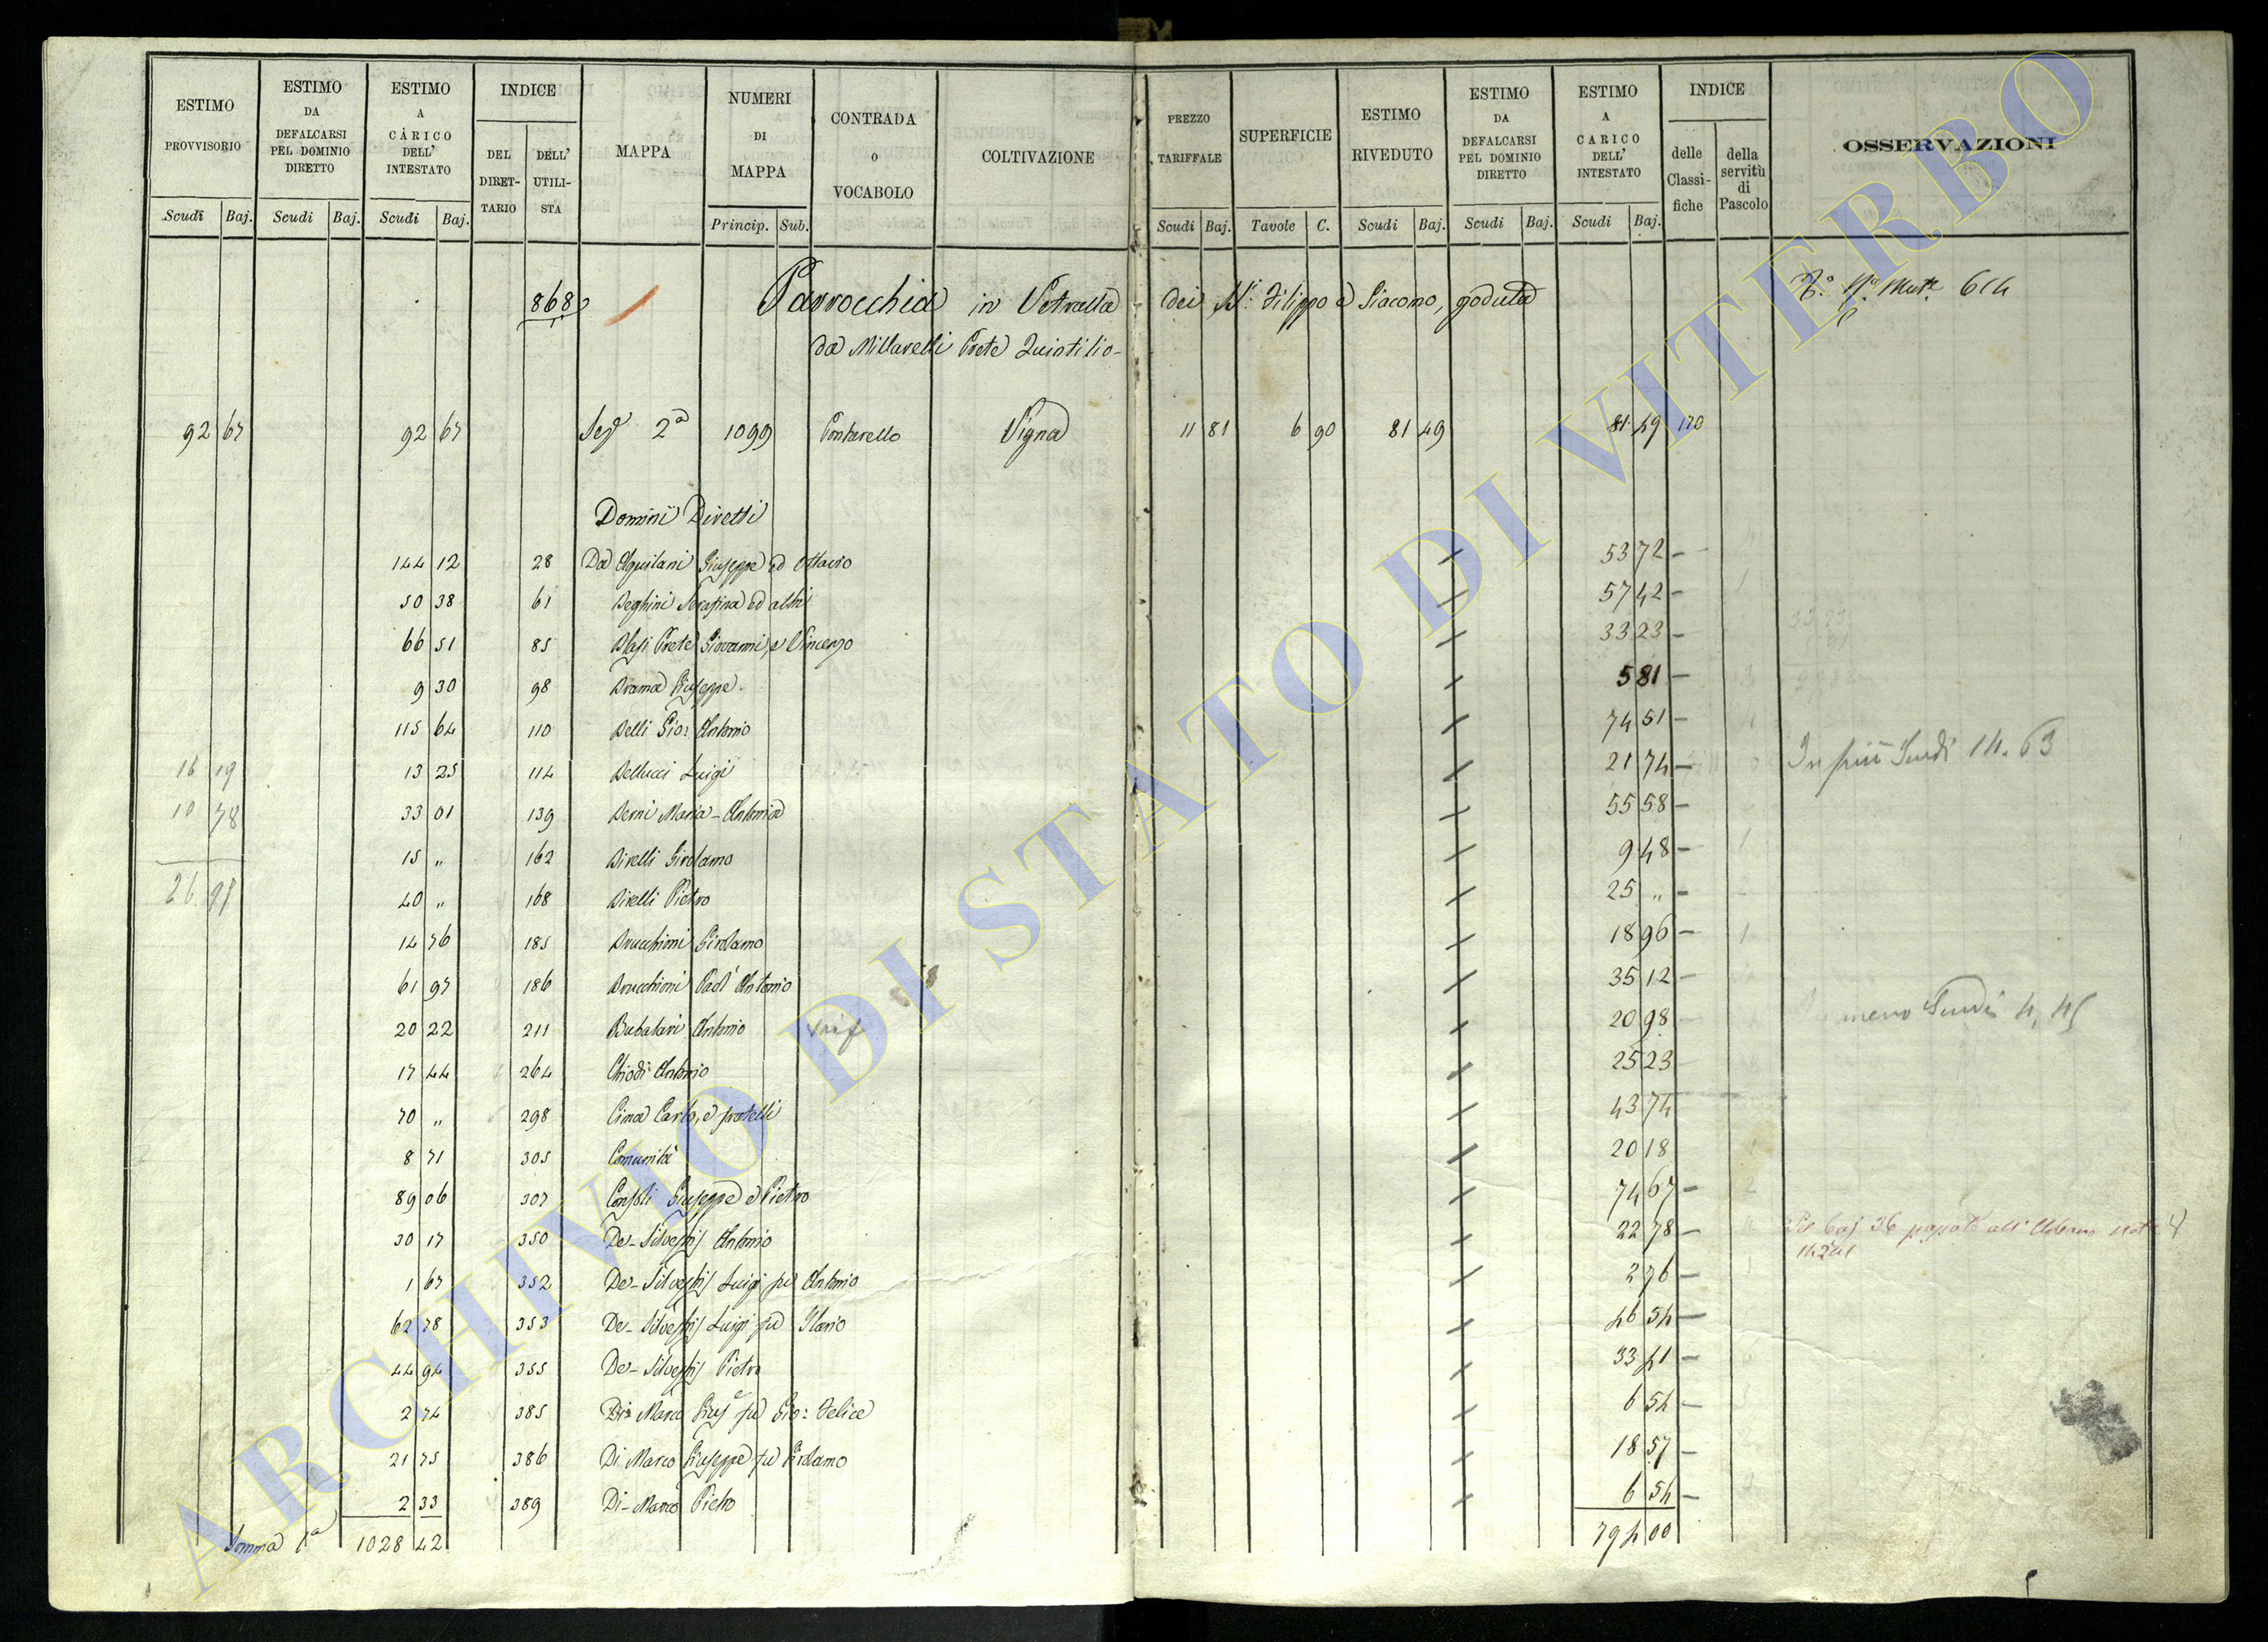 ESTIMO PROVVISORIO Scudi Baj.
ESTIMO DA DEFALCARSI PEL DOMINIO DIRETTO Scudi Baj.
ESTIMO A CARICO DELL' INTESTATO Scudi Baj.
INDICE DEL DIRET-TARIO DELL' UTILI-STA
MAPPA
NUMERI DI MAPPA Princip. Sub.
CONTRADA O VOCABOLO
COLTIVAZIONE
PREZZO TARIFFALE Scudi Baj.
SUPERFICIE Tavole C.
ESTIMO RIVEDUTO Scudi Baj.
ESTIMO DA DEFALCARSI PEL DOMINIO DIRETTO Scudi Baj.
ESTIMO A CARICO DELL' INTESTATO Scudi Baj.
INDICE delle Classi-fiche della servitù di Pascolo
OSSERVAZIONI
868 Parrocchia in Vetralla dei Filippo e Giacomo, goduta 614
da Prete
92 67 92 67 Sez 2a 1099 Vigna 11 81 6 90 81 49 81 49 170
Domini Diretti
144 12 28 Da Aquilani Giuseppe ed Ottavio 53 72 -
50 38 61 Beghini Serafina ed altri 57 42 -
66 51 85 Blasi Prete Giovanni, e Vincenzo 33 23 -
9 30 98 Brama Giuseppe 5 81 -
115 64 110 Belli Gio: Antonio 74 51 -
16 19 13 25 114 Bellucci Luigi 21 74 - In più Scudi 14.63
10 78 33 01 139 Berni Maria-Antonia 55 58 -
15 „ 162 Birelli Girolamo 9 48 -
26 97 40 „ 168 Birelli Pietro 25 „ -
14 76 185 Brucchioni Girolamo 18 96 -
61 97 186 Brucchioni Antonio 35 12 -
20 22 211 Bubalari Antonio 20 98 meno Scudi 4,45
17 44 264 Chiodi Antonio 25 23
70 „ 298 Cima Carlo, e fratelli 43 74
8 71 305 Comunità 20 18
89 06 307 Consoli Giuseppe e Pietro 74 67 -
30 17 350 De-Silvestris Antonio 22 78 - baj 36
1 67 352 De-Silvestris Luigi fu Antonio 2 76 -
62 78 353 De-Silvestris Luigi fu Ilario 46 54 -
44 94 355 De-Silvestris Pietro 33 41 -
2 74 385 Di Marco Gius.e fu Gio: Felice 6 54 -
21 75 386 Di Marco Giuseppe fu Girolamo 18 57 -
2 33 389 Di-Marco Pietro 6 54 -
Somma 1a 1028 42 794 00
ARCHIVIO DI STATO DI VITERBO